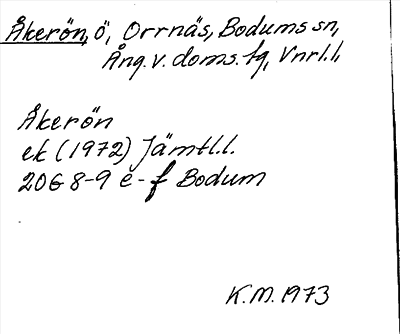 Åkerön, ö, Orrnäs, Bodums sn,
Ång. v. doms. fg, Vnrl. l,
Åkerön
ek (1972) Jämtl.l.
20G 8-9 e-f Bodum
K.M. 1973